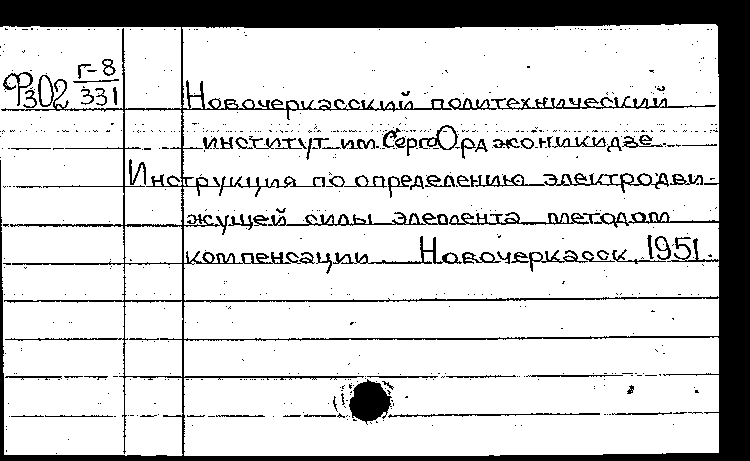 Ф302 Г-8/331
Новочеркасский политехнический
институт им. Серго Орджоникидзе.
Инструкция по определению электродви-
жущей силы элемента методом
компенсации. Новочеркасск, 1951.